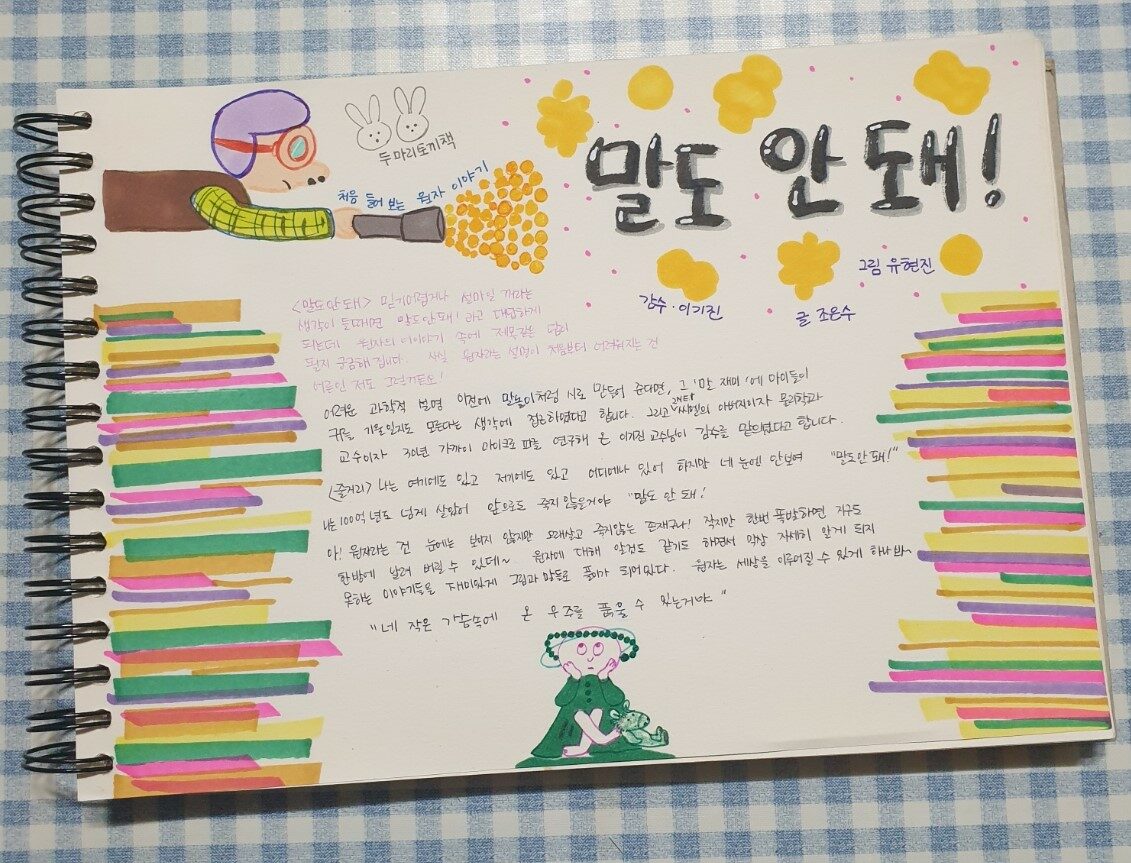 두마리토끼책
처음 들어 보는 원자 이야기
말도 안 돼!
그림 유현진
감수·이기진
글 조은수
<말도안돼> 믿기어렵거나 설마일 까라는
생각이 들때면 말도안돼! 라고 대답하게
되는데 원자의 이야기 속에 제목같은 답이
될지 궁금해집니다. 사실 원자라는 설명이 처음부터 어려워지는 건
어른인 저도 그렇거든요!
어려운 과학적 설명 이전에 말놀이처럼 시로 만들어 준다면, 그 '말 재미'에 아이들이
귀를 기울일지도 모른다는 생각에 접근하였다고 합니다. 그리고 2NE1 씨엘의 아버지이자 물리학과
교수이자 30년 가까이 마이크로파를 연구해 온 이기진 교수님이 감수를 맡으셨다고 합니다.
<줄거리> 나는 여기에도 있고 저기에도 있고 어디에나 있어 하지만 네 눈엔 안보여 "말도안돼!"
나는 100억 년도 넘게 살았어 앞으로도 죽지 않을거야 "말도 안 돼!
아! 원자라는 건 눈에는 보이지 않지만 오래살고 죽지않는 존재구나! 작지만 한번 폭발하면 지구도
한방에 날려 버릴 수 있데~ 원자에 대해 알것도 같기도 하면서 막상 자세히 알게 되지
못하는 이야기들을 재미있게 그림과 말들로 풀이가 되어있다. 원자는 세상을 이루어질 수 있게 하나봐~
"네 작은 가슴속에 온 우주를 품을 수 있는거야"